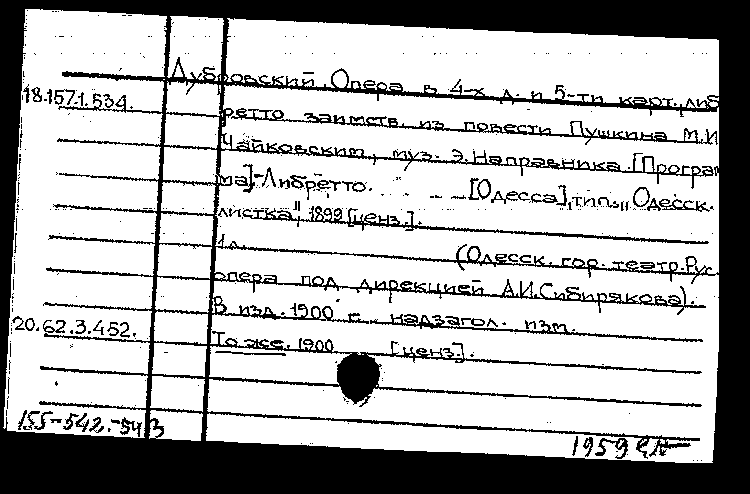 Дубровский. Опера в 4-х д. и 5-ти карт., либ
18.157.1.534.
ретто заимств. из повести Пушкина М.И.
Чайковским, муз. Э. Направника. [Програм
ма]-Либретто. [Одесса], тип. „Одесск.
листка", 1899 [ценз.].
1 л. (Одесск. гор. театр. Рус.
опера под дирекцией А.И. Сибирякова).
В изд. 1900 г. надзагол. изм.
20.62.3.452.
То же. 1900 [ценз.].
155-542.-543
1959